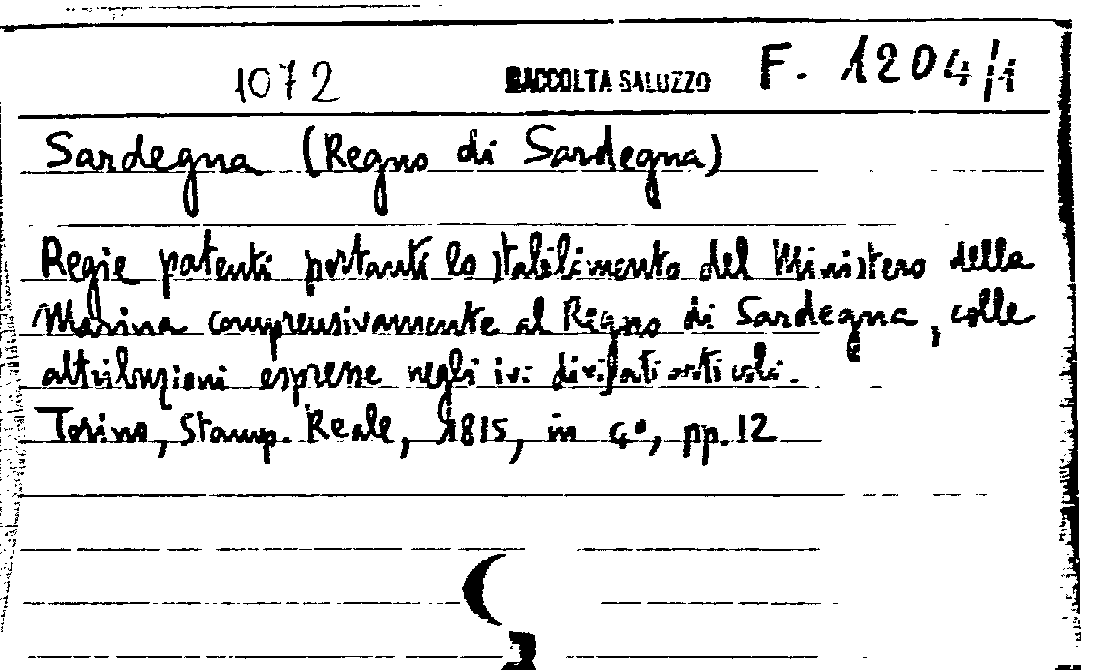 1072 RACCOLTA SALUZZO F. 1204/1
Sardegna (Regno di Sardegna)
Regie patenti portanti lo stabilimento del Ministero della
Marina comprensivamente al Regno di Sardegna, colle
attribuzioni espresse negli ivi divisati articoli.
Torino, Stamp. Reale, 1815, in 4°, pp. 12